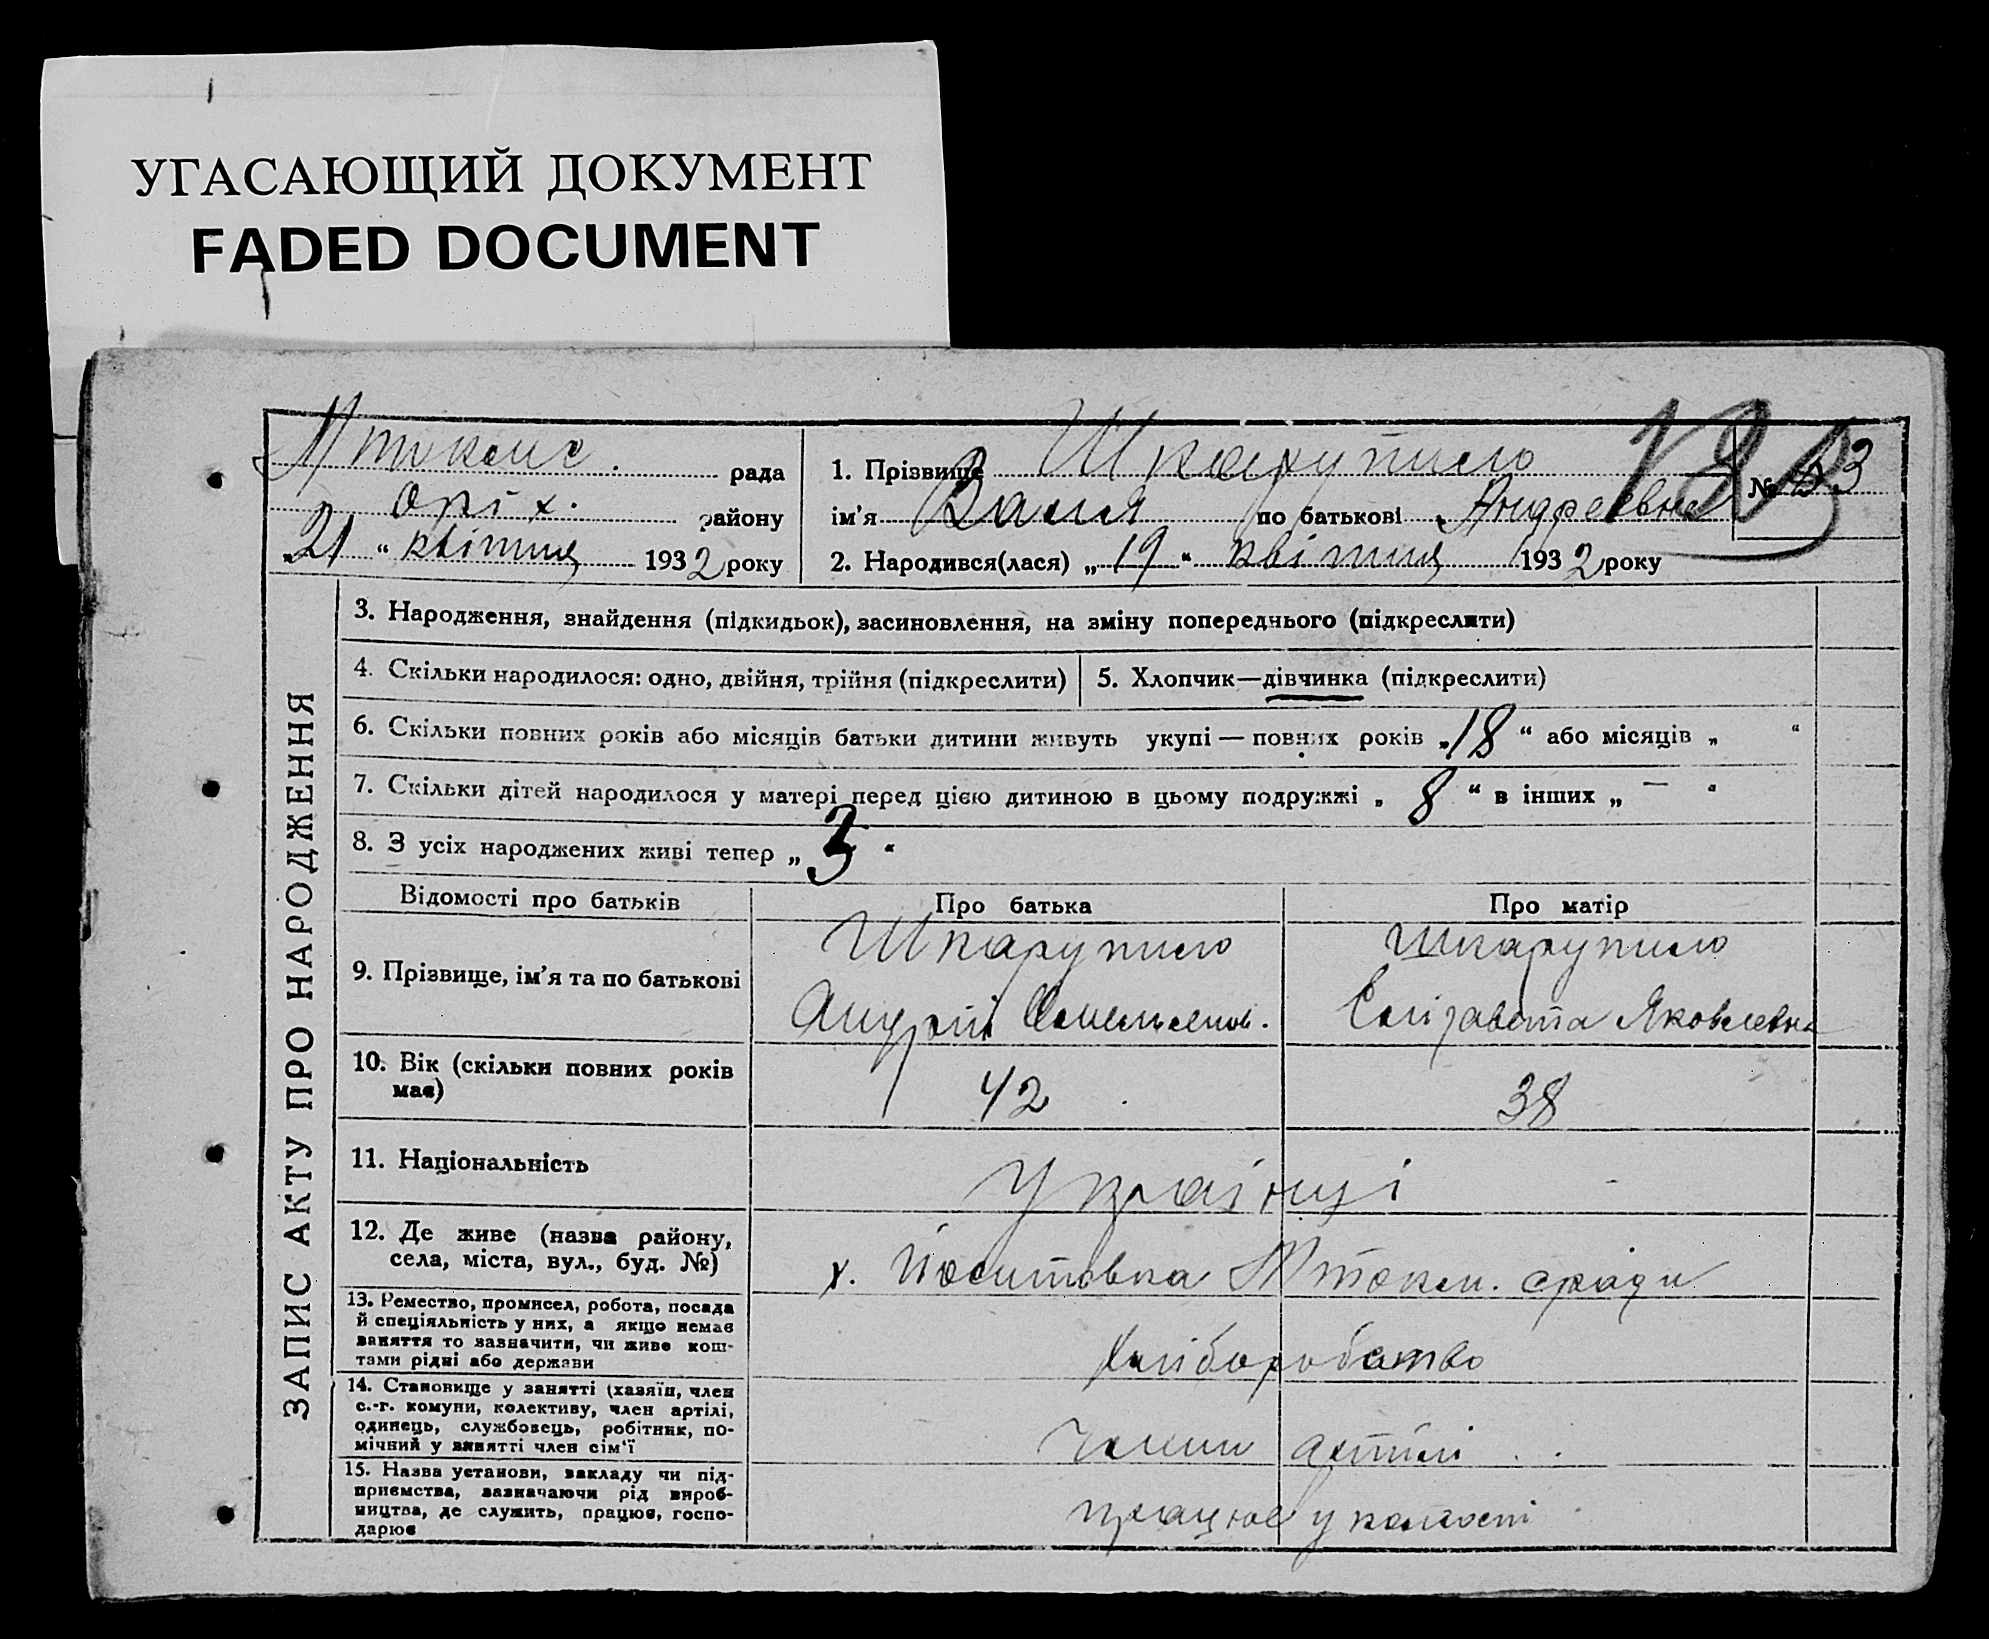 УГАСАЮЩИЙ ДОКУМЕНТ
FADED DOCUMENT
рада
Оріх. району
„21“ квітня 1932 року
1. Прізвище Шкарупило
ім'я Валя по батькові Андреевна
№ 53
2. Народився(лася) „19“ квітня 1932 року
ЗАПИС АКТУ ПРО НАРОДЖЕННЯ
3. Народження, знайдення (підкидьок), засиновлення, на зміну попереднього (підкреслити)
4. Скільки народилося: одно, двійня, трійня (підкреслити)
5. Хлопчик—дівчинка (підкреслити)
6. Скільки повних років або місяців батьки дитини живуть укупі — повних років „18“ або місяців „ “
7. Скільки дітей народилося у матері перед цією дитиною в цьому подружжі „8“ в інших „ — “
8. З усіх народжених живі тепер „3“
Відомості про батьків
Про батька
Про матір
9. Прізвище, ім'я та по батькові
Шкарупило
Андрій
Шкарупило
Єлізавета Яковлевна
10. Вік (скільки повних років
має)
42
38
11. Національність
Українці
12. Де живе (назва району,
села, міста, вул., буд. №)
х. с/ради
13. Ремество, промисел, робота, посада
й спеціяльність у них, а якщо немає
заняття то зазначити, чи живе кош-
тами рідні або держави
хліборобство
14. Становище у занятті (хазяїн, член
с.-г. комуни, колективу, член артілі,
одинець, службовець, робітник, по-
мічний у занятті член сім'ї
члени артілі
15. Назва установи, закладу чи під-
приємства, зазначаючи рід вироб-
ництва, де служить, працює, госпо-
дарює
працює у колгоспі